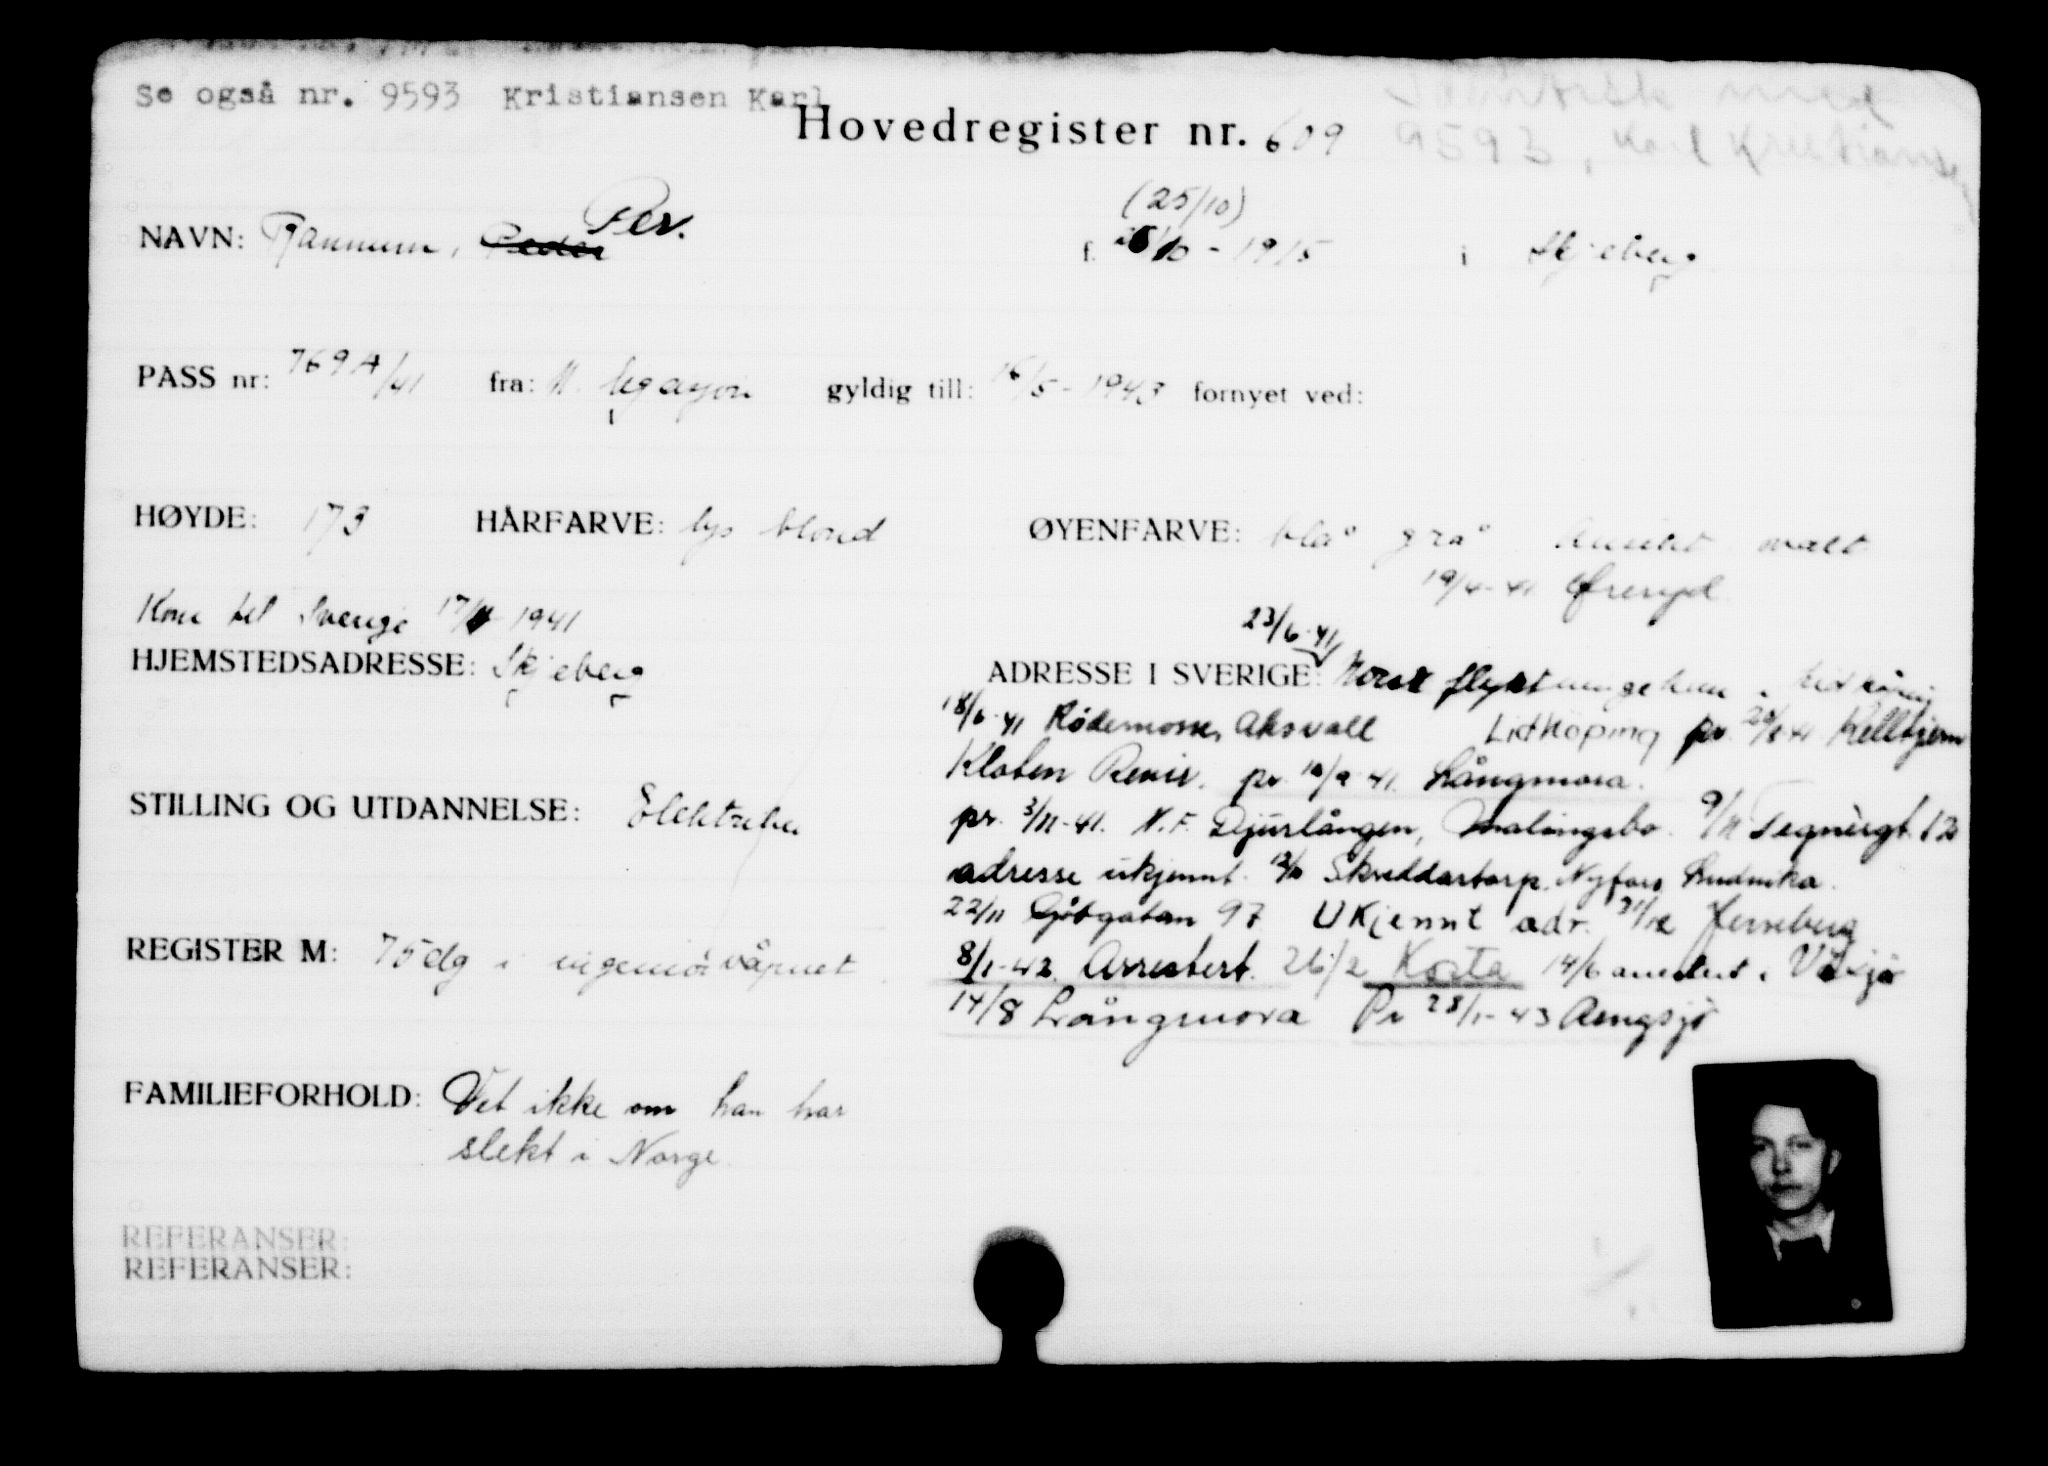 Se også nr. 9593 Kristiansen Karl
Hovedregister nr. 609
Identisk med
9593, Karl Kristiansen
NAVN: Peder Per. f. (25/10) - 1915 i Skjeberg
PASS nr: 769 A/41 fra: N. legasjon gyldig till: 16/5 - 1943 fornyet ved:
HØYDE: 173 HÅRFARVE: lys blond ØYENFARVE: blå grå Ansikt ovalt
19/4-41 Øreryd
Kom til Sverige 17/4 1941
HJEMSTEDSADRESSE: Skjeberg
STILLING OG UTDANNELSE: Elektriker
REGISTER M: 75 dg i ingeniørvåpnet
FAMILIEFORHOLD: Vet ikke om han har
slekt i Norge.
REFERANSER:
REFERANSER:
23/6-41
ADRESSE I SVERIGE: Norsk flyktningehem, Lidköping
18/6-41 Rødemossen Aksvall Lidköping pr. 20/8-41
Kloten Revir. pr. /9-41. Långmora.
pr. 3/11-41. N.F. Djurlången, Malingsbo. 9/11 Tegnérgt. 13
adresse ukjennt. Skreddartorp, Nyfors Ludvika.
22/11 Götgatan 97 Ukjennt adr.
8/1-42 Arrestert. 26/2 Kosta 14/6 arrestert i Växjö
14/8 Långmora Pr 28/1-43